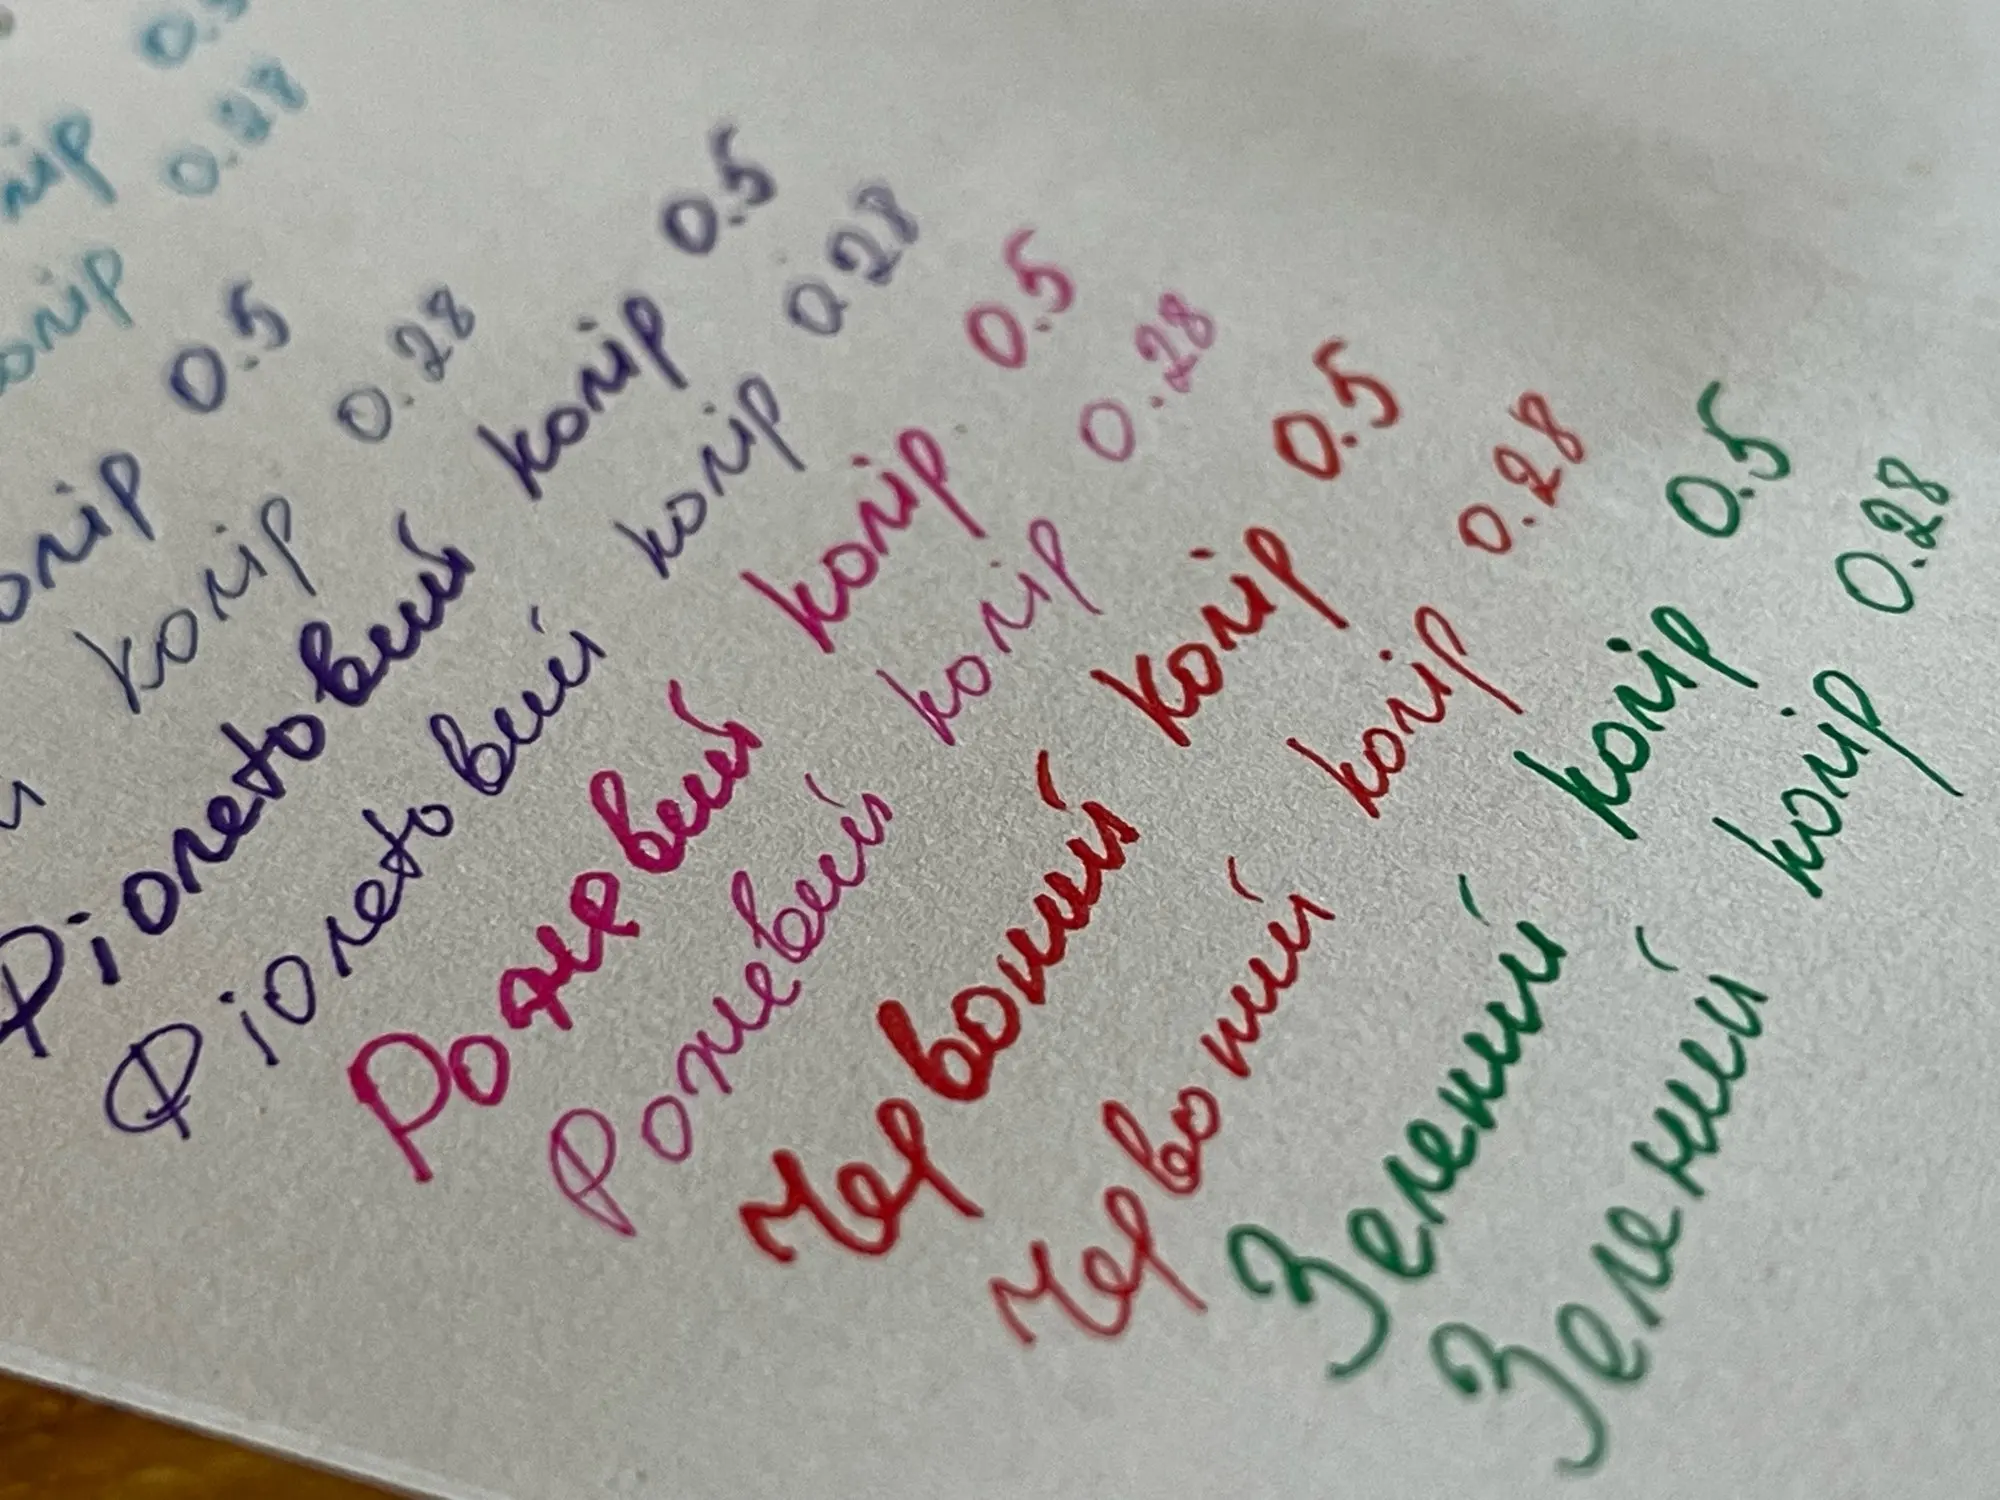 0.5
колір 0.28
колір 0.5
колір 0.28
Фіолетовий колір 0.5
Фіолетовий колір 0.28
Рожевий колір 0.5
Рожевий колір 0.28
Червоний колір 0.5
Червоний колір 0.28
Зелений колір 0.5
Зелений колір 0.28